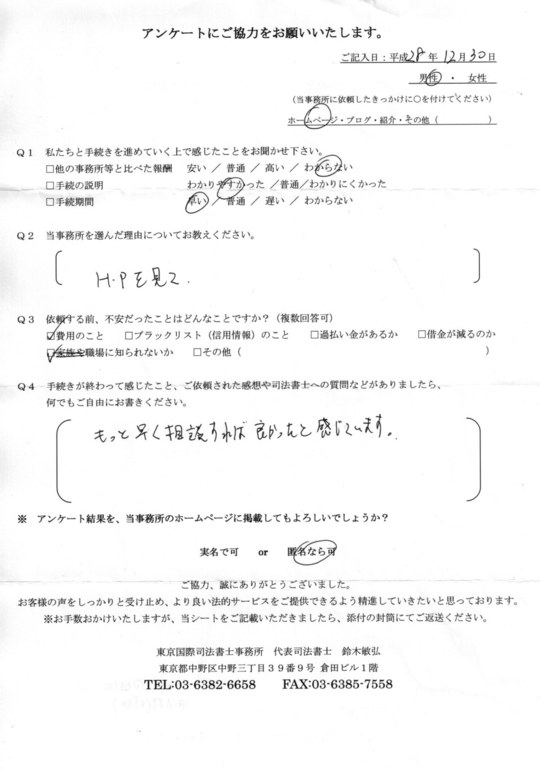 アンケートにご協力をお願いいたします。
ご記入日：平成28年12月30日
男性 ・ 女性
（当事務所に依頼したきっかけに○を付けてください）
ホームページ・ブログ・紹介・その他（　　　　）
Q1 私たちと手続きを進めていく上で感じたことをお聞かせ下さい。
□他の事務所等と比べた報酬 安い ／ 普通 ／ 高い ／ わからない
□手続の説明 わかりやすかった ／普通／わかりにくかった
□手続期間 早い ／ 普通 ／ 遅い ／ わからない
Q2 当事務所を選んだ理由についてお教えください。
H.Pを見て.
Q3 依頼する前、不安だったことはどんなことですか？（複数回答可）
☑費用のこと □ブラックリスト（信用情報）のこと □過払い金があるか □借金が減るのか
☑家族や職場に知られないか □その他（　　　　）
Q4 手続きが終わって感じたこと、ご依頼された感想や司法書士への質問などがありましたら、
何でもご自由にお書きください。
もっと早く相談すれば良かったと感じています。
※ アンケート結果を、当事務所のホームページに掲載してもよろしいでしょうか？
実名で可 or 匿名なら可
ご協力、誠にありがとうございました。
お客様の声をしっかりと受け止め、より良い法的サービスをご提供できるよう精進していきたいと思っております。
※お手数おかけいたしますが、当シートをご記載いただきましたら、添付の封筒にてご返送ください。
東京国際司法書士事務所 代表司法書士 鈴木敏弘
東京都中野区中野三丁目３９番９号 倉田ビル１階
TEL:03-6382-6658 FAX:03-6385-7558